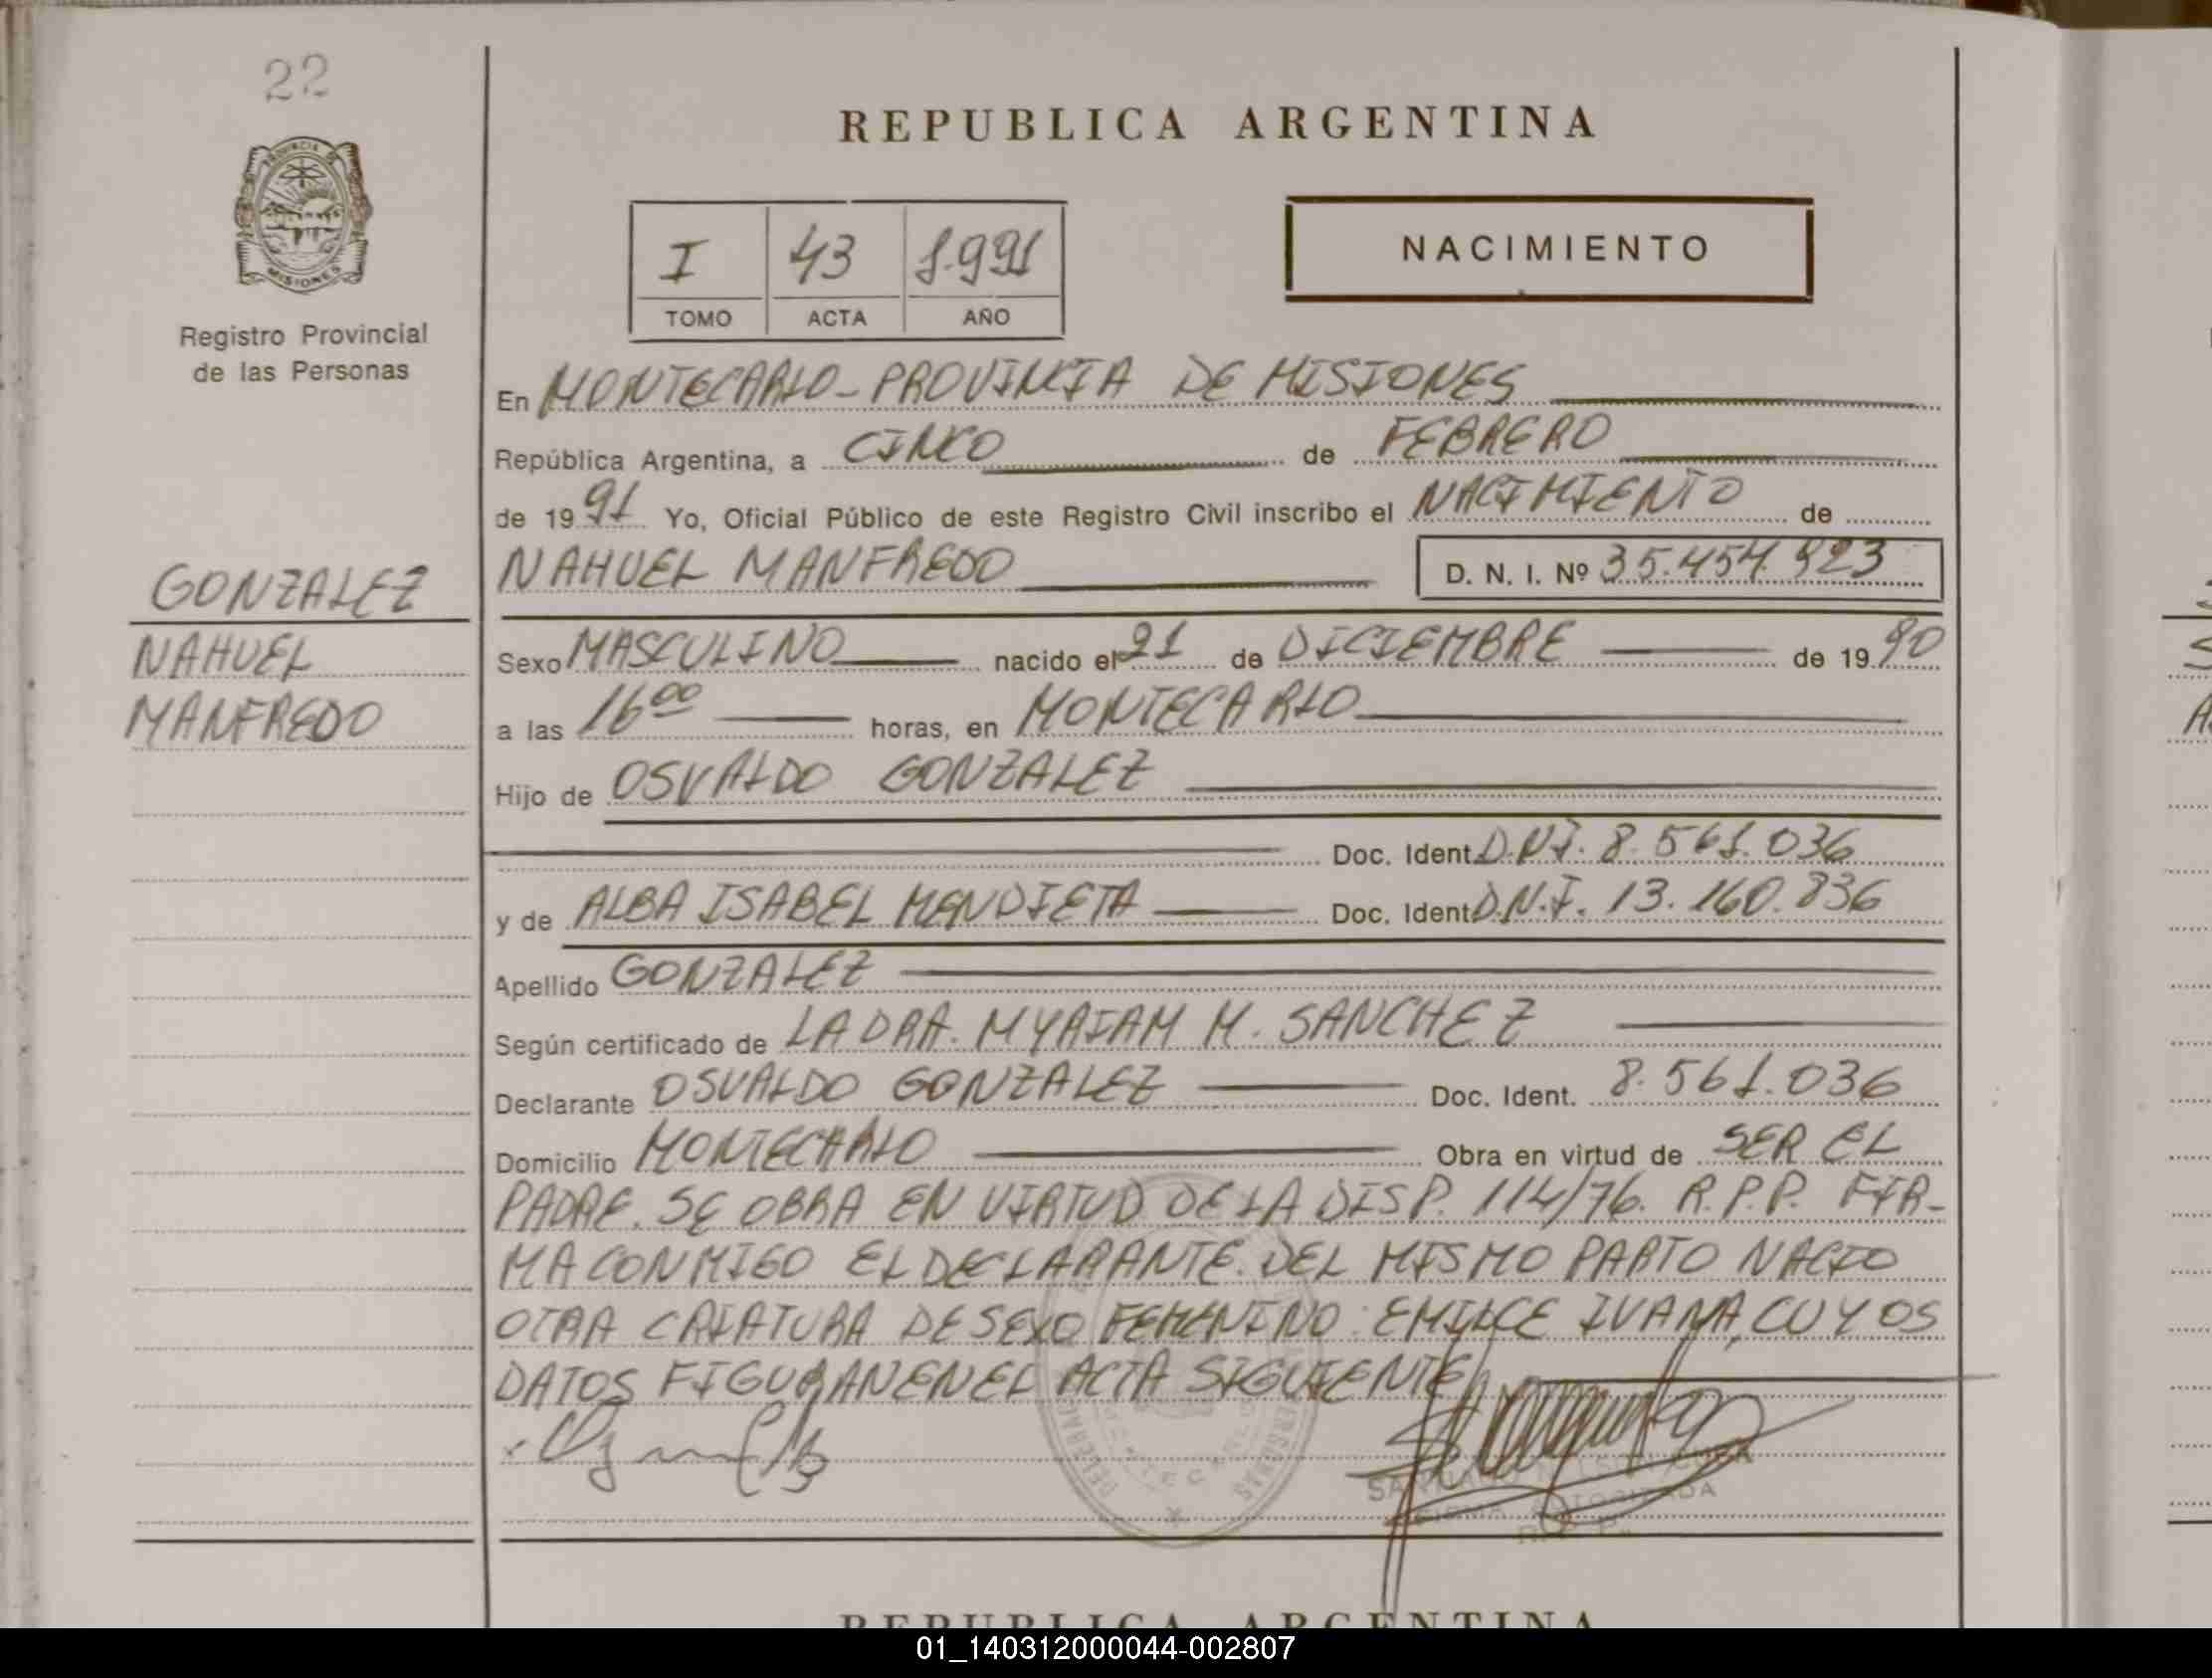 22
PROVINCIA DE
MISIONES
Registro Provincial
de las Personas
GONZALEZ
NAHUEL
MANFREDO
REPUBLICA ARGENTINA
I 43 1.991
TOMO ACTA AÑO
NACIMIENTO
En MONTECARLO - PROVINCIA DE MISIONES
República Argentina, a CINCO de FEBRERO
de 1991 Yo, Oficial Público de este Registro Civil inscribo el NACIMIENTO de
NAHUEL MANFREDO D. N. I. Nº 35.454.923
Sexo MASCULINO nacido el 21 de DICIEMBRE de 1990
a las 16 00 horas, en MONTECARLO
Hijo de OSVALDO GONZALEZ
Doc. Ident. D.N.I. 8.561.036
y de ALBA ISABEL MENDIETA Doc. Ident. D.N.I. 13.160.836
Apellido GONZALEZ
Según certificado de LA DRA. MYRIAM M. SANCHEZ
Declarante OSVALDO GONZALEZ Doc. Ident. 8.561.036
Domicilio MONTECARLO Obra en virtud de SER EL
PADRE. SE OBRA EN VIRTUD DE LA DISP. 114/76. R.P.P. FIR-
MA CONMIGO EL DECLARANTE. DEL MISMO PARTO NACIO
OTRA CRIATURA DE SEXO FEMENINO: EMILCE IVANA, CUYOS
DATOS FIGURAN EN EL ACTA SIGUIENTE
REPUBLICA ARGENTINA
01_140312000044-002807